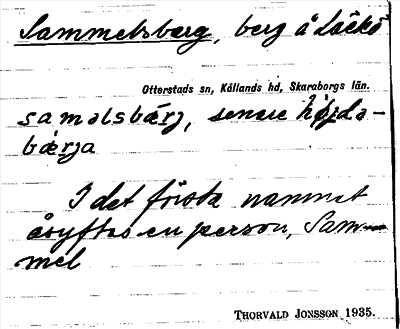 Sammelsberg, berg å Läckö
Otterstads sn, Kållands hd, Skaraborgs län.
samalsbärj, senare höjda-
bärja
I det första namnet
åsyftas en person, Sam-
mel
THORVALD JONSSON 1935.